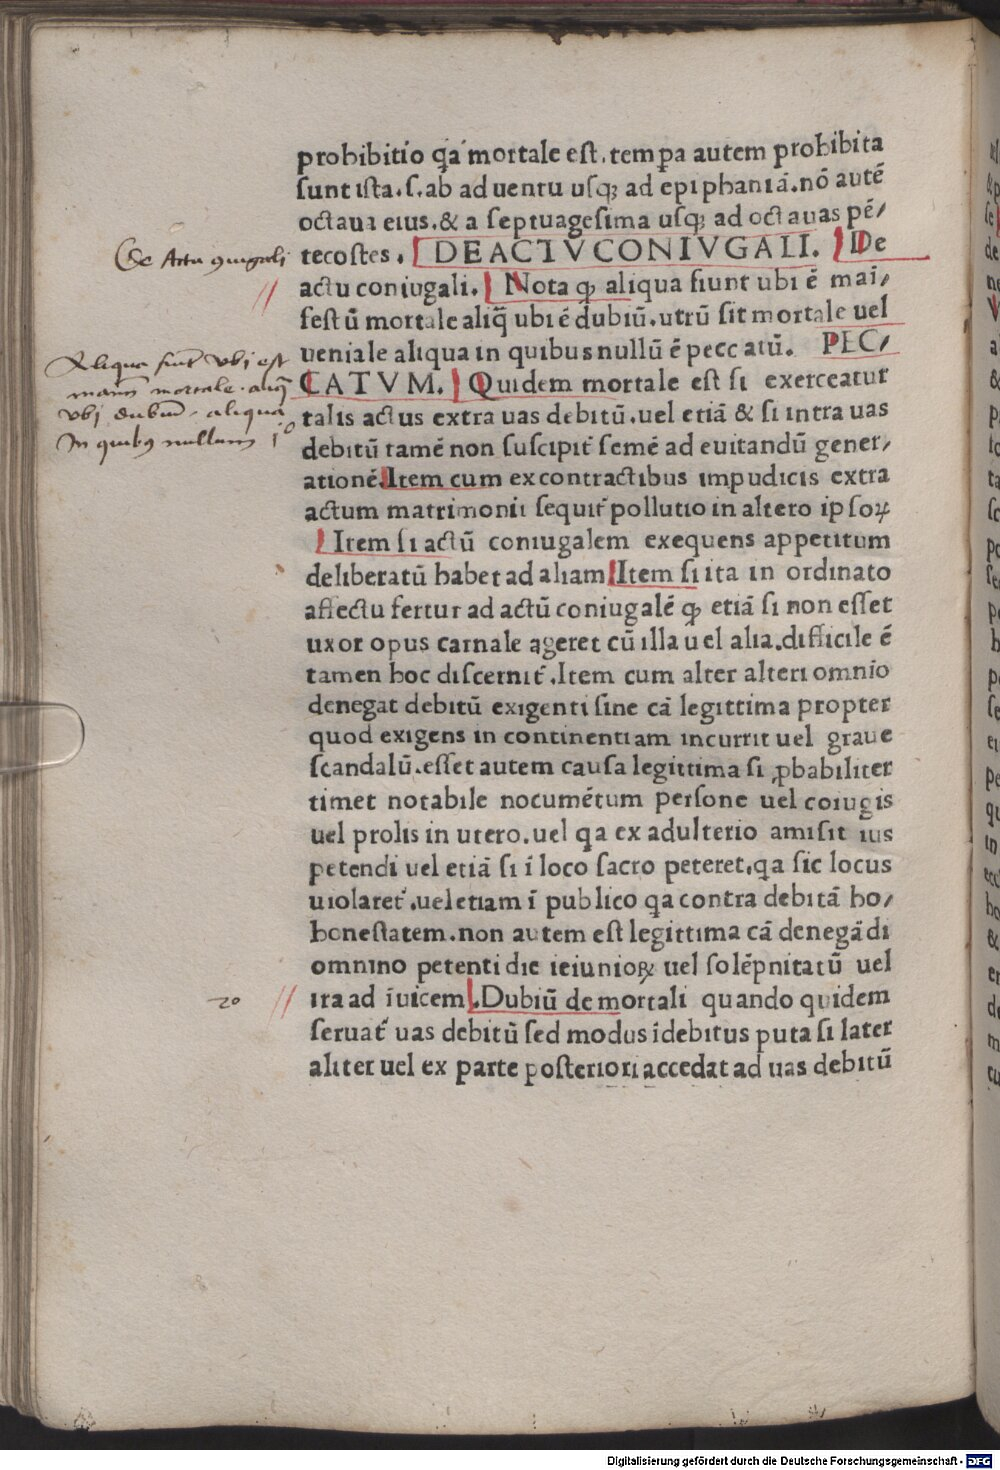 prohibitio qa mortale est. tempa autem prohibita
sunt ista. s. ab aduentu usqȝ ad epiphaniā. nō autē
octaua eius. & a septuagesima usqȝ ad octauas pē/
tecostes. DE ACTV CONIVGALI. De
actu coniugali. Nota ꝙ aliqua fiunt ubi ē mai/
festū mortale aliq̄ ubi ē dubiū. utrū sit mortale uel
ueniale aliqua in quibus nullū ē peccatū. PEC/
CATVM. Quidem mortale est si exerceatur
talis actus extra uas debitū. uel etiā & si intra uas
debitū tamē non suscipit᷑ semē ad euitandū gener/
ationē. Item cum ex contractibus impudicis extra
actum matrimonii sequit᷑ pollutio in altero ipsoꝝ
Item si actū coniugalem exequens appetitum
deliberatū habet ad aliam Item si ita in ordinato
affectu fertur ad actū coniugalē ꝙ etiā si non esset
uxor opus carnale ageret cū illa uel alia. difficile ē
tamen hoc discernit᷑. Item cum alter alteri omnio
denegat debitū exigenti sine cā legittima propter
quod exigens in continentiam incurrit uel graue
scandalū. esset autem causa legittima si ꝓbabiliter
timet notabile nocumētum persone uel coiugis
uel prolis in utero. uel qa ex adulterio amisit ius
petendi uel etiā si ī loco sacro peteret. qa sic locus
uiolaret᷑. uel etiam ī publico qa contra debitā ho/
honestatem. non autem est legittima cā denegādi
omnino petenti die ieiunioꝝ uel solēpnitatū uel
ira ad īuicem. Dubiū de mortali quando quidem
seruat᷑ uas debitū sed modus īdebitus puta si later
aliter uel ex parte posteriori accedat ad uas debitū
De Actu ꝯiugali
Aliqua sunt vbi est
manīm mortale. aliq̄
vbi dubiū. aliqua
In quibꝰ nullum 1º
2º
Digitalisierung gefördert durch die Deutsche Forschungsgemeinschaft - DFG